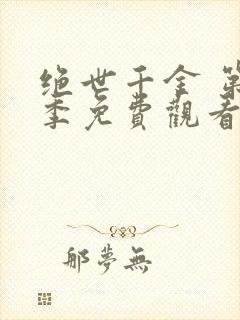 绝世千金 第
季免費觀看
那夢無